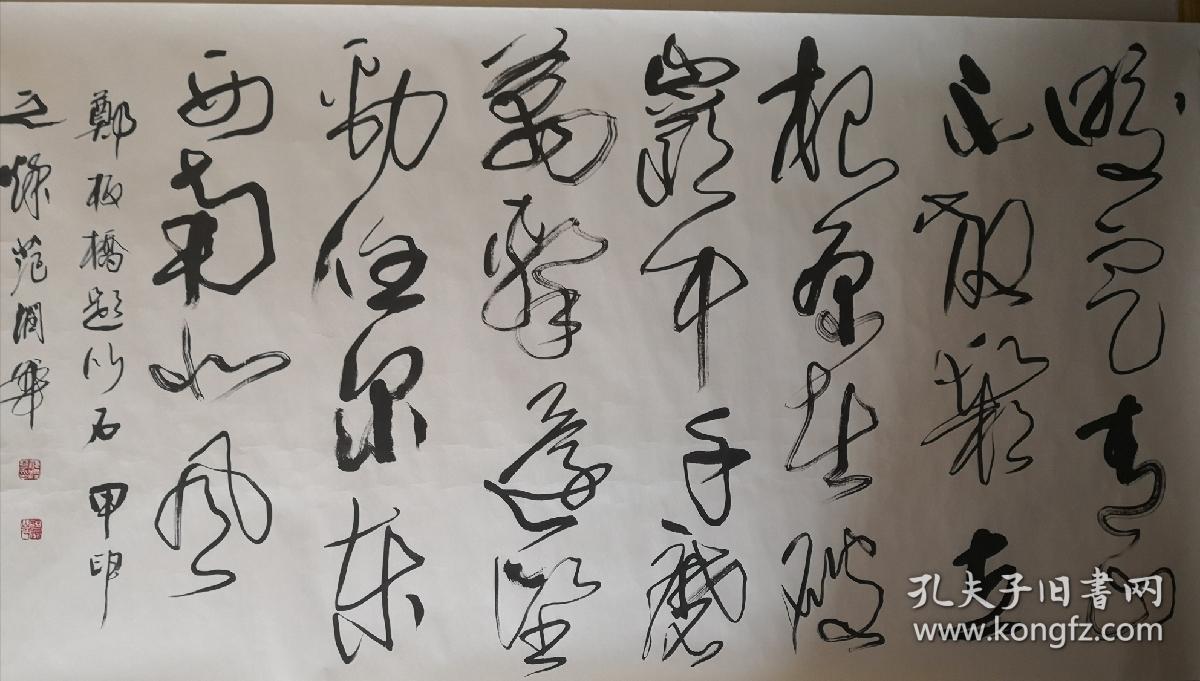 咬定青山
不放鬆立
根原在破
巖中千磨
萬擊還堅
勁任尔东
西南北风
鄭板橋题竹石 甲
之 范潤華
孔夫子旧书网
www.kongfz.com